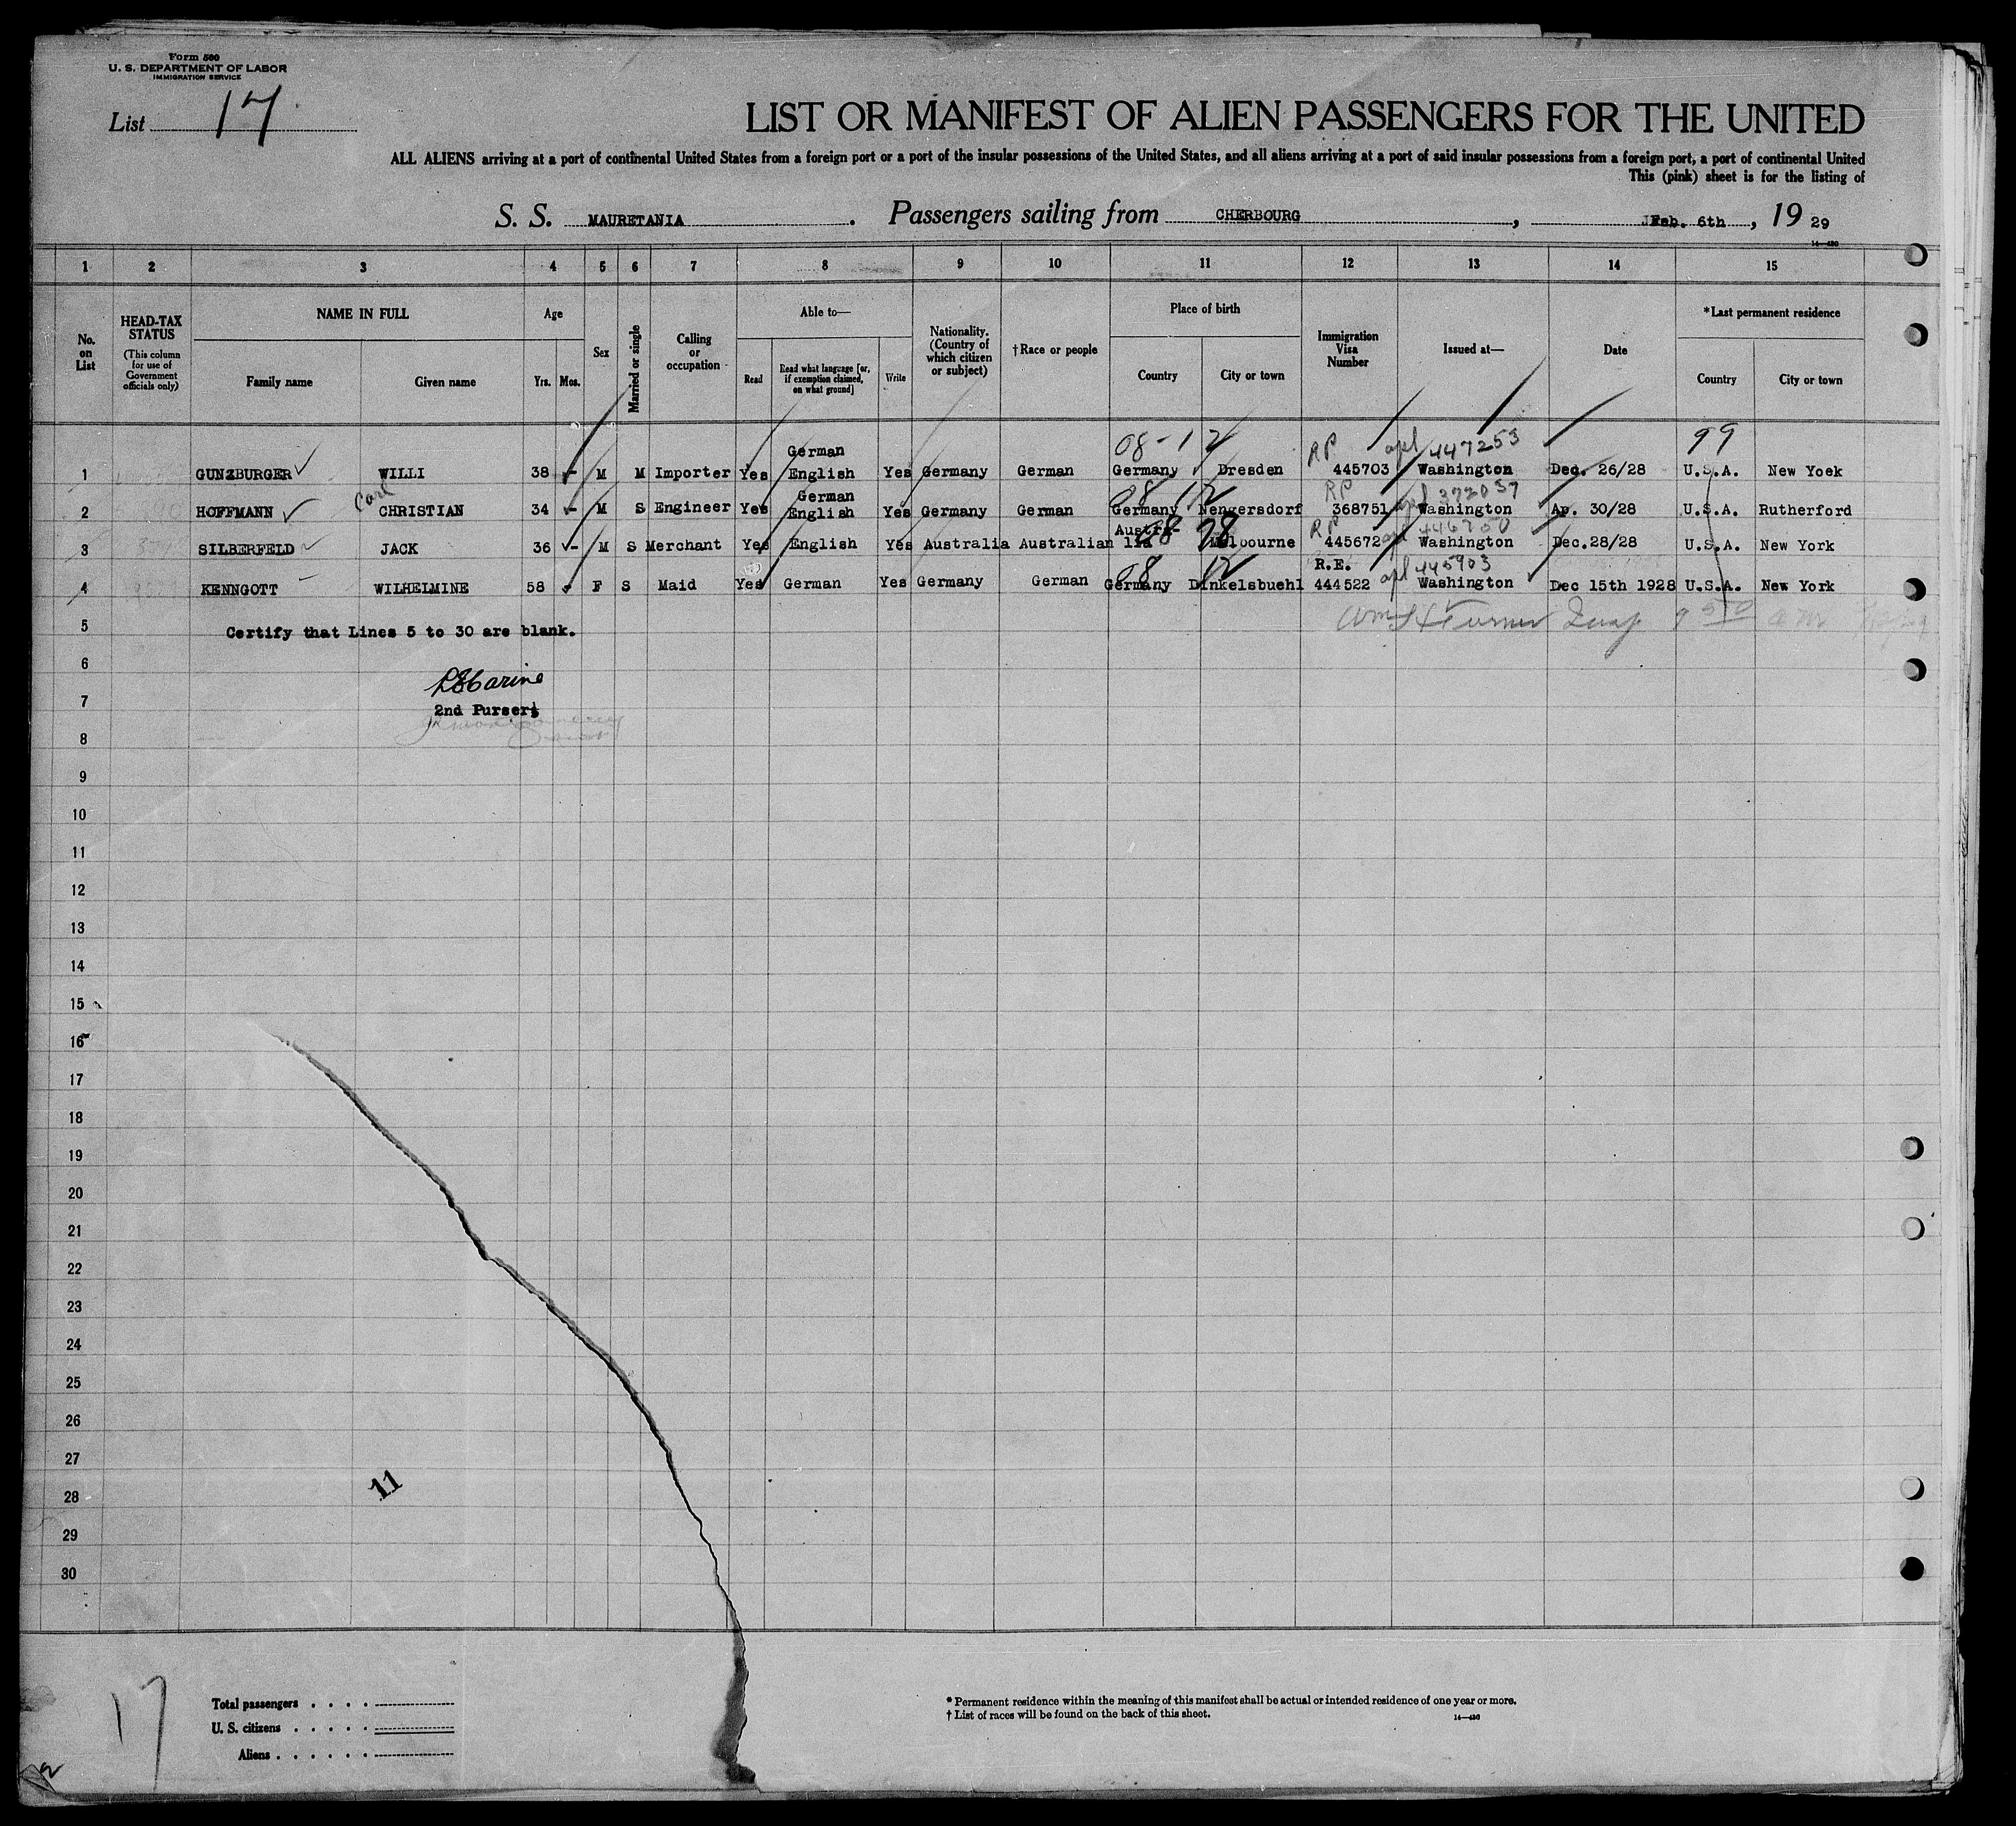 Form 500
U. S. DEPARTMENT OF LABOR
IMMIGRATION SERVICE
List 17
LIST OR MANIFEST OF ALIEN PASSENGERS FOR THE UNITED
ALL ALIENS arriving at a port of continental United States from a foreign port or a port of the insular possessions of the United States, and all aliens arriving at a port of said insular possessions from a foreign port, a port of continental United
This (pink) sheet is for the listing of
S. S. MAURETANIA. Passengers sailing from CHERBOURG, Feb. 6th, 19 29
14—430
1 2 3 4 5 6 7 8 9 10 11 12 13 14 15
No. on List
HEAD-TAX STATUS (This column for use of Government officials only)
NAME IN FULL
Family name Given name
Age
Yrs. Mos.
Sex
Married or single
Calling or occupation
Able to—
Read
Read what language [or, if exemption claimed, on what ground]
Write
Nationality. (Country of which citizen or subject)
†Race or people
Place of birth
Country City or town
Immigration Visa Number
Issued at—
Date
*Last permanent residence
Country City or town
German 08-12 RP apl 447253 99
1 GUNZBURGER WILLI 38 - M M Importer Yes English Yes Germany German Germany Dresden 445703 Washington Dec. 26/28 U.S.A. New Yoek
Carl German 08 12 RP apl 372037
2 HOFFMANN CHRISTIAN 34 - M S Engineer Yes English Yes Germany German Germany Nengersdorf 368751 Washington Ap. 30/28 U.S.A. Rutherford
Austra- 08 78 RP
3 SILBERFELD JACK 36 - M S Merchant Yes English Yes Australia Australian lia Melbourne 445672 Washington Dec.28/28 U.S.A. New York
08 12 R.E. apl 445903
4 KENNGOTT WILHELMINE 58 F S Maid Yes German Yes Germany German Germany Dinkelsbuehl 444522 Washington Dec 15th 1928 U.S.A. New York
5 Certify that Lines 5 to 30 are blank. Turner Insp 9 50 am
6
7 2nd Purser
8
9
10
11
12
13
14
15
16
17
18
19
20
21
22
23
24
25
26
27
28
29
30
11
17
Total passengers
U. S. citizens
Aliens
* Permanent residence within the meaning of this manifest shall be actual or intended residence of one year or more.
† List of races will be found on the back of this sheet.
14—430